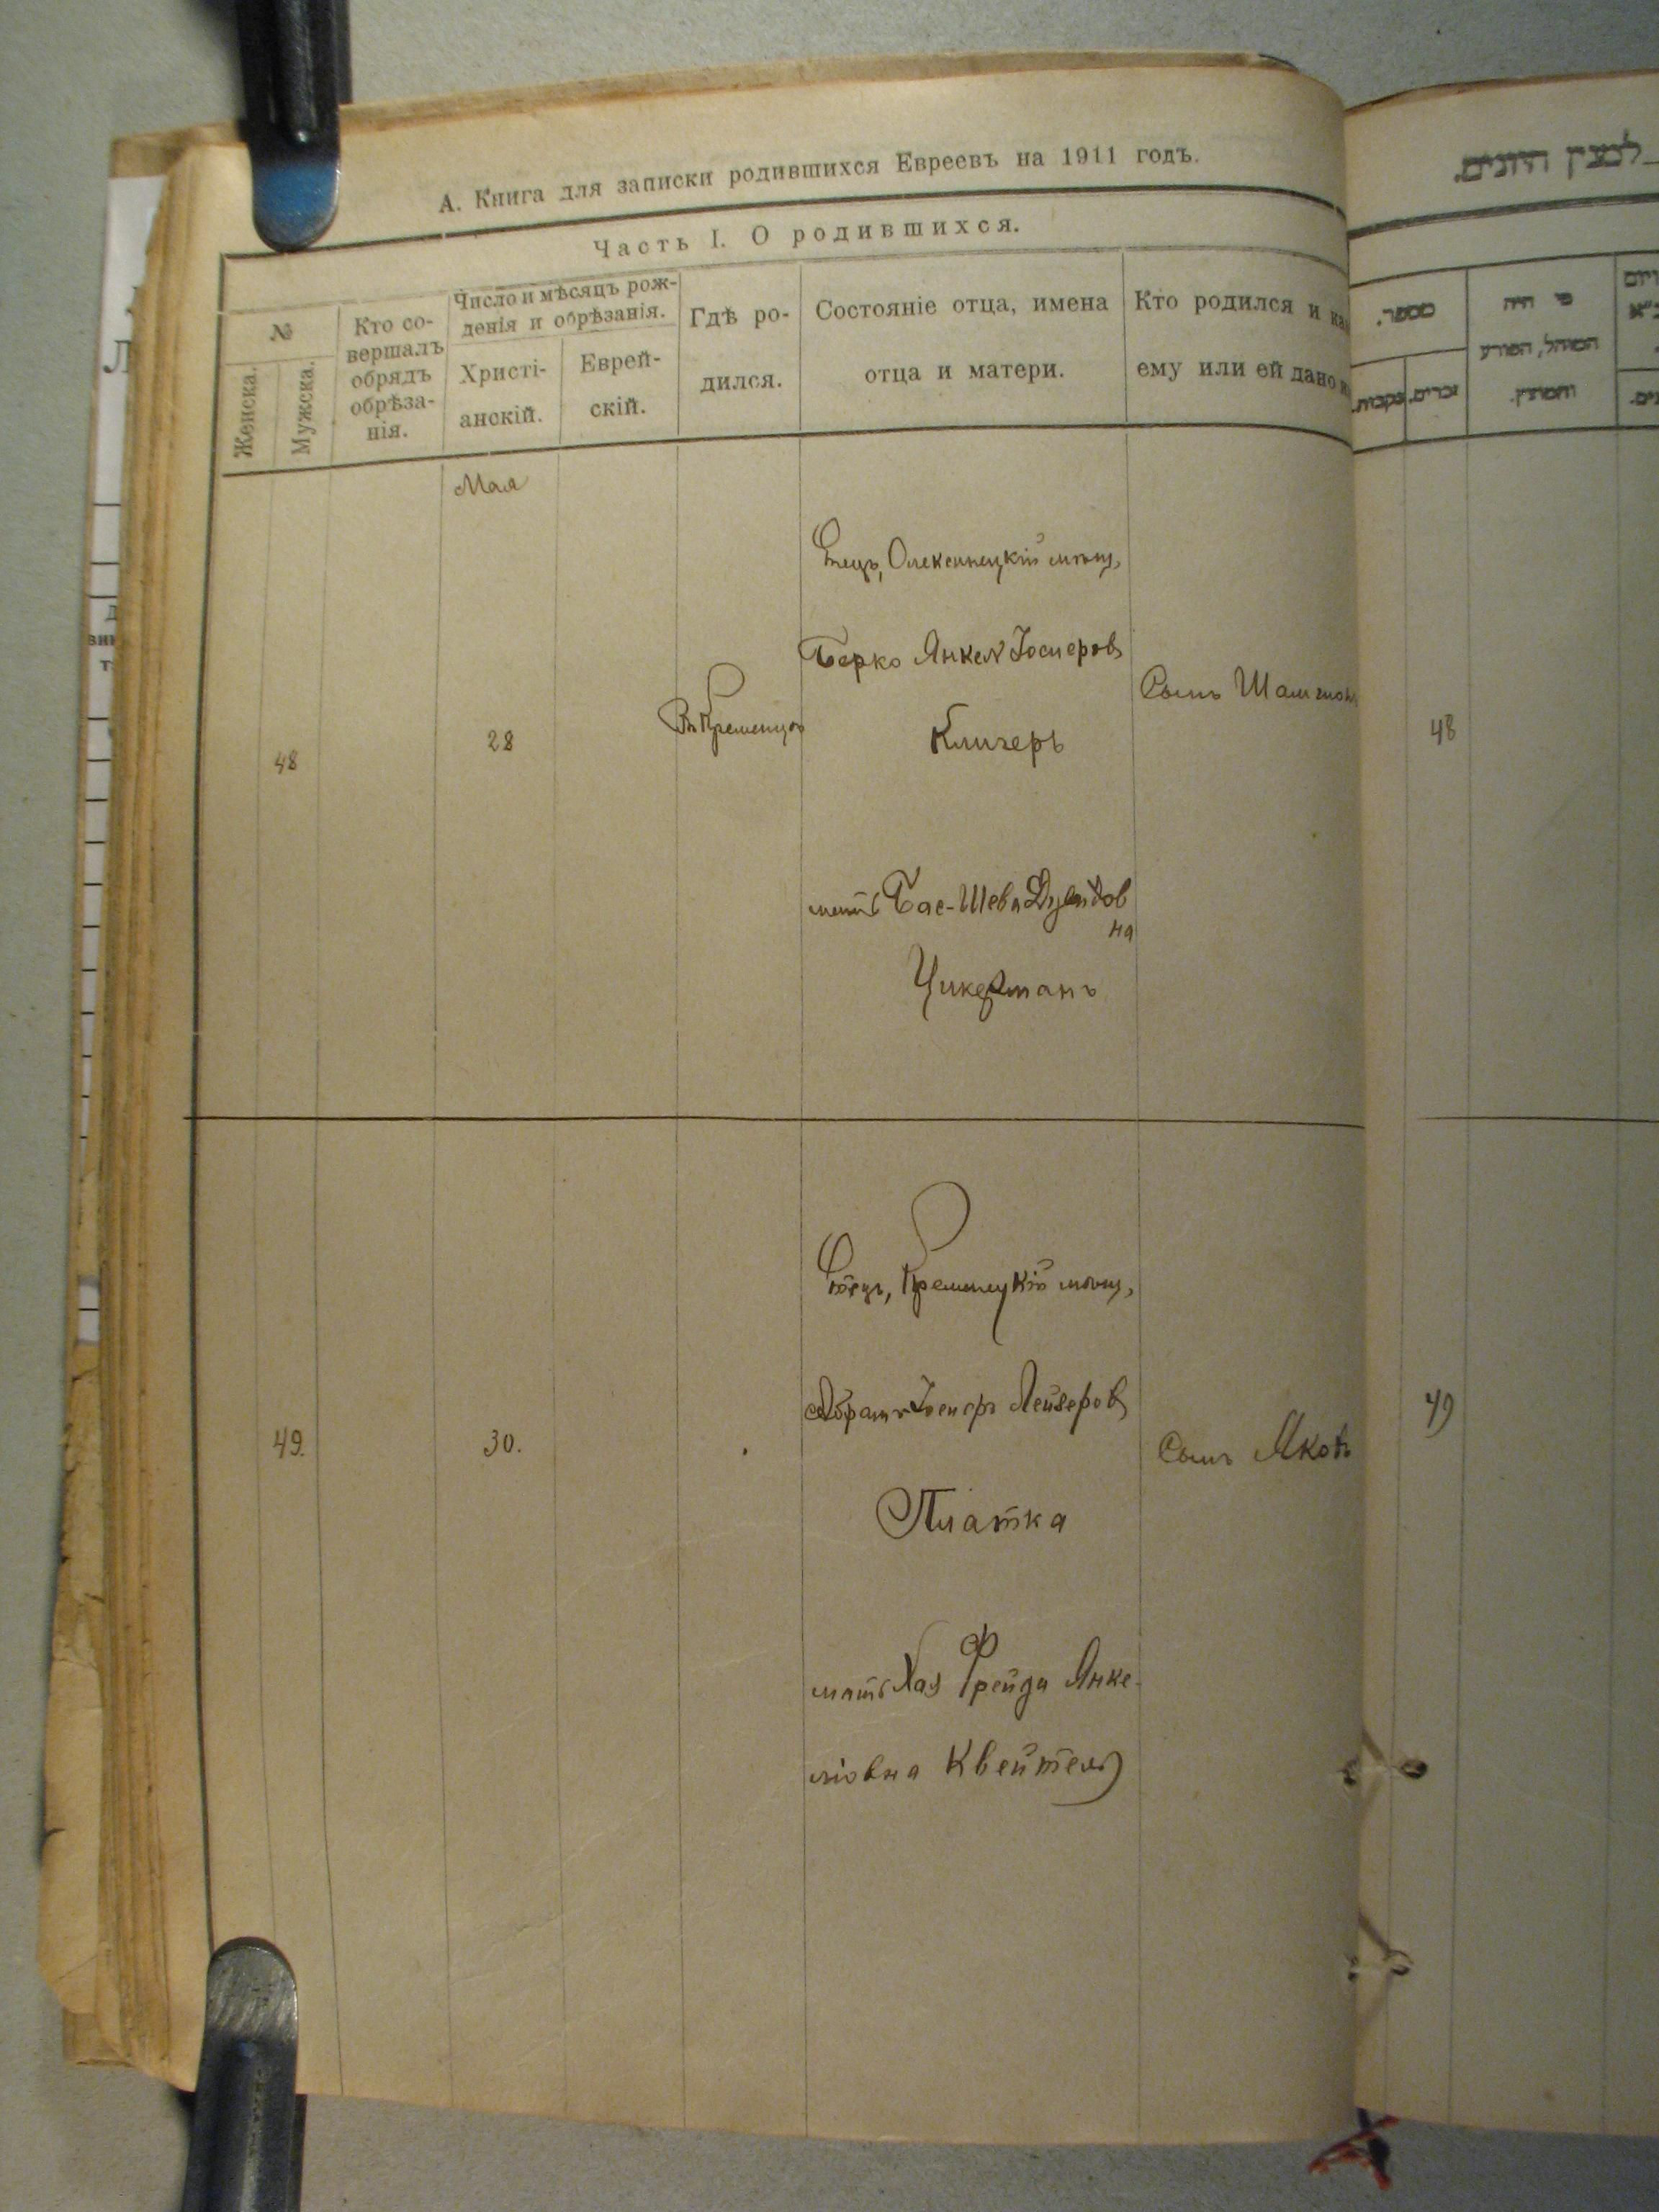 А. Книга для записки родившихся Евреевъ на 1911 годъ.
Часть I. О родившихся.
№
Женска.
Мужска.
Кто со-
вершалъ
обрядъ
обрѣза-
нія.
Число и мѣсяцъ рож-
денія и обрѣзанія.
Христі-
анскій.
Еврей-
скій.
Гдѣ ро-
дился.
Состояніе отца, имена
отца и матери.
Кто родился и ка
ему или ей дано
Мая
48
28
Въ Кременцѣ
Отецъ, Олексинецкій мѣщ,
Берко Янкель Іосиеровъ
Клигеръ
мать Бас-Шева
на
Цикерманъ
Сынъ
49.
30.
Отецъ, Кременецкій мѣщ,
Абрамъ Іосифъ Лейзеровъ
Платка
мать Хая Фрейда Янке-
ліовна Квейтель
Сынъ Яковъ
מספר.
זכרים.
נקבות.
מי היה
המוהל, הפורע
והמוצץ.
48
49